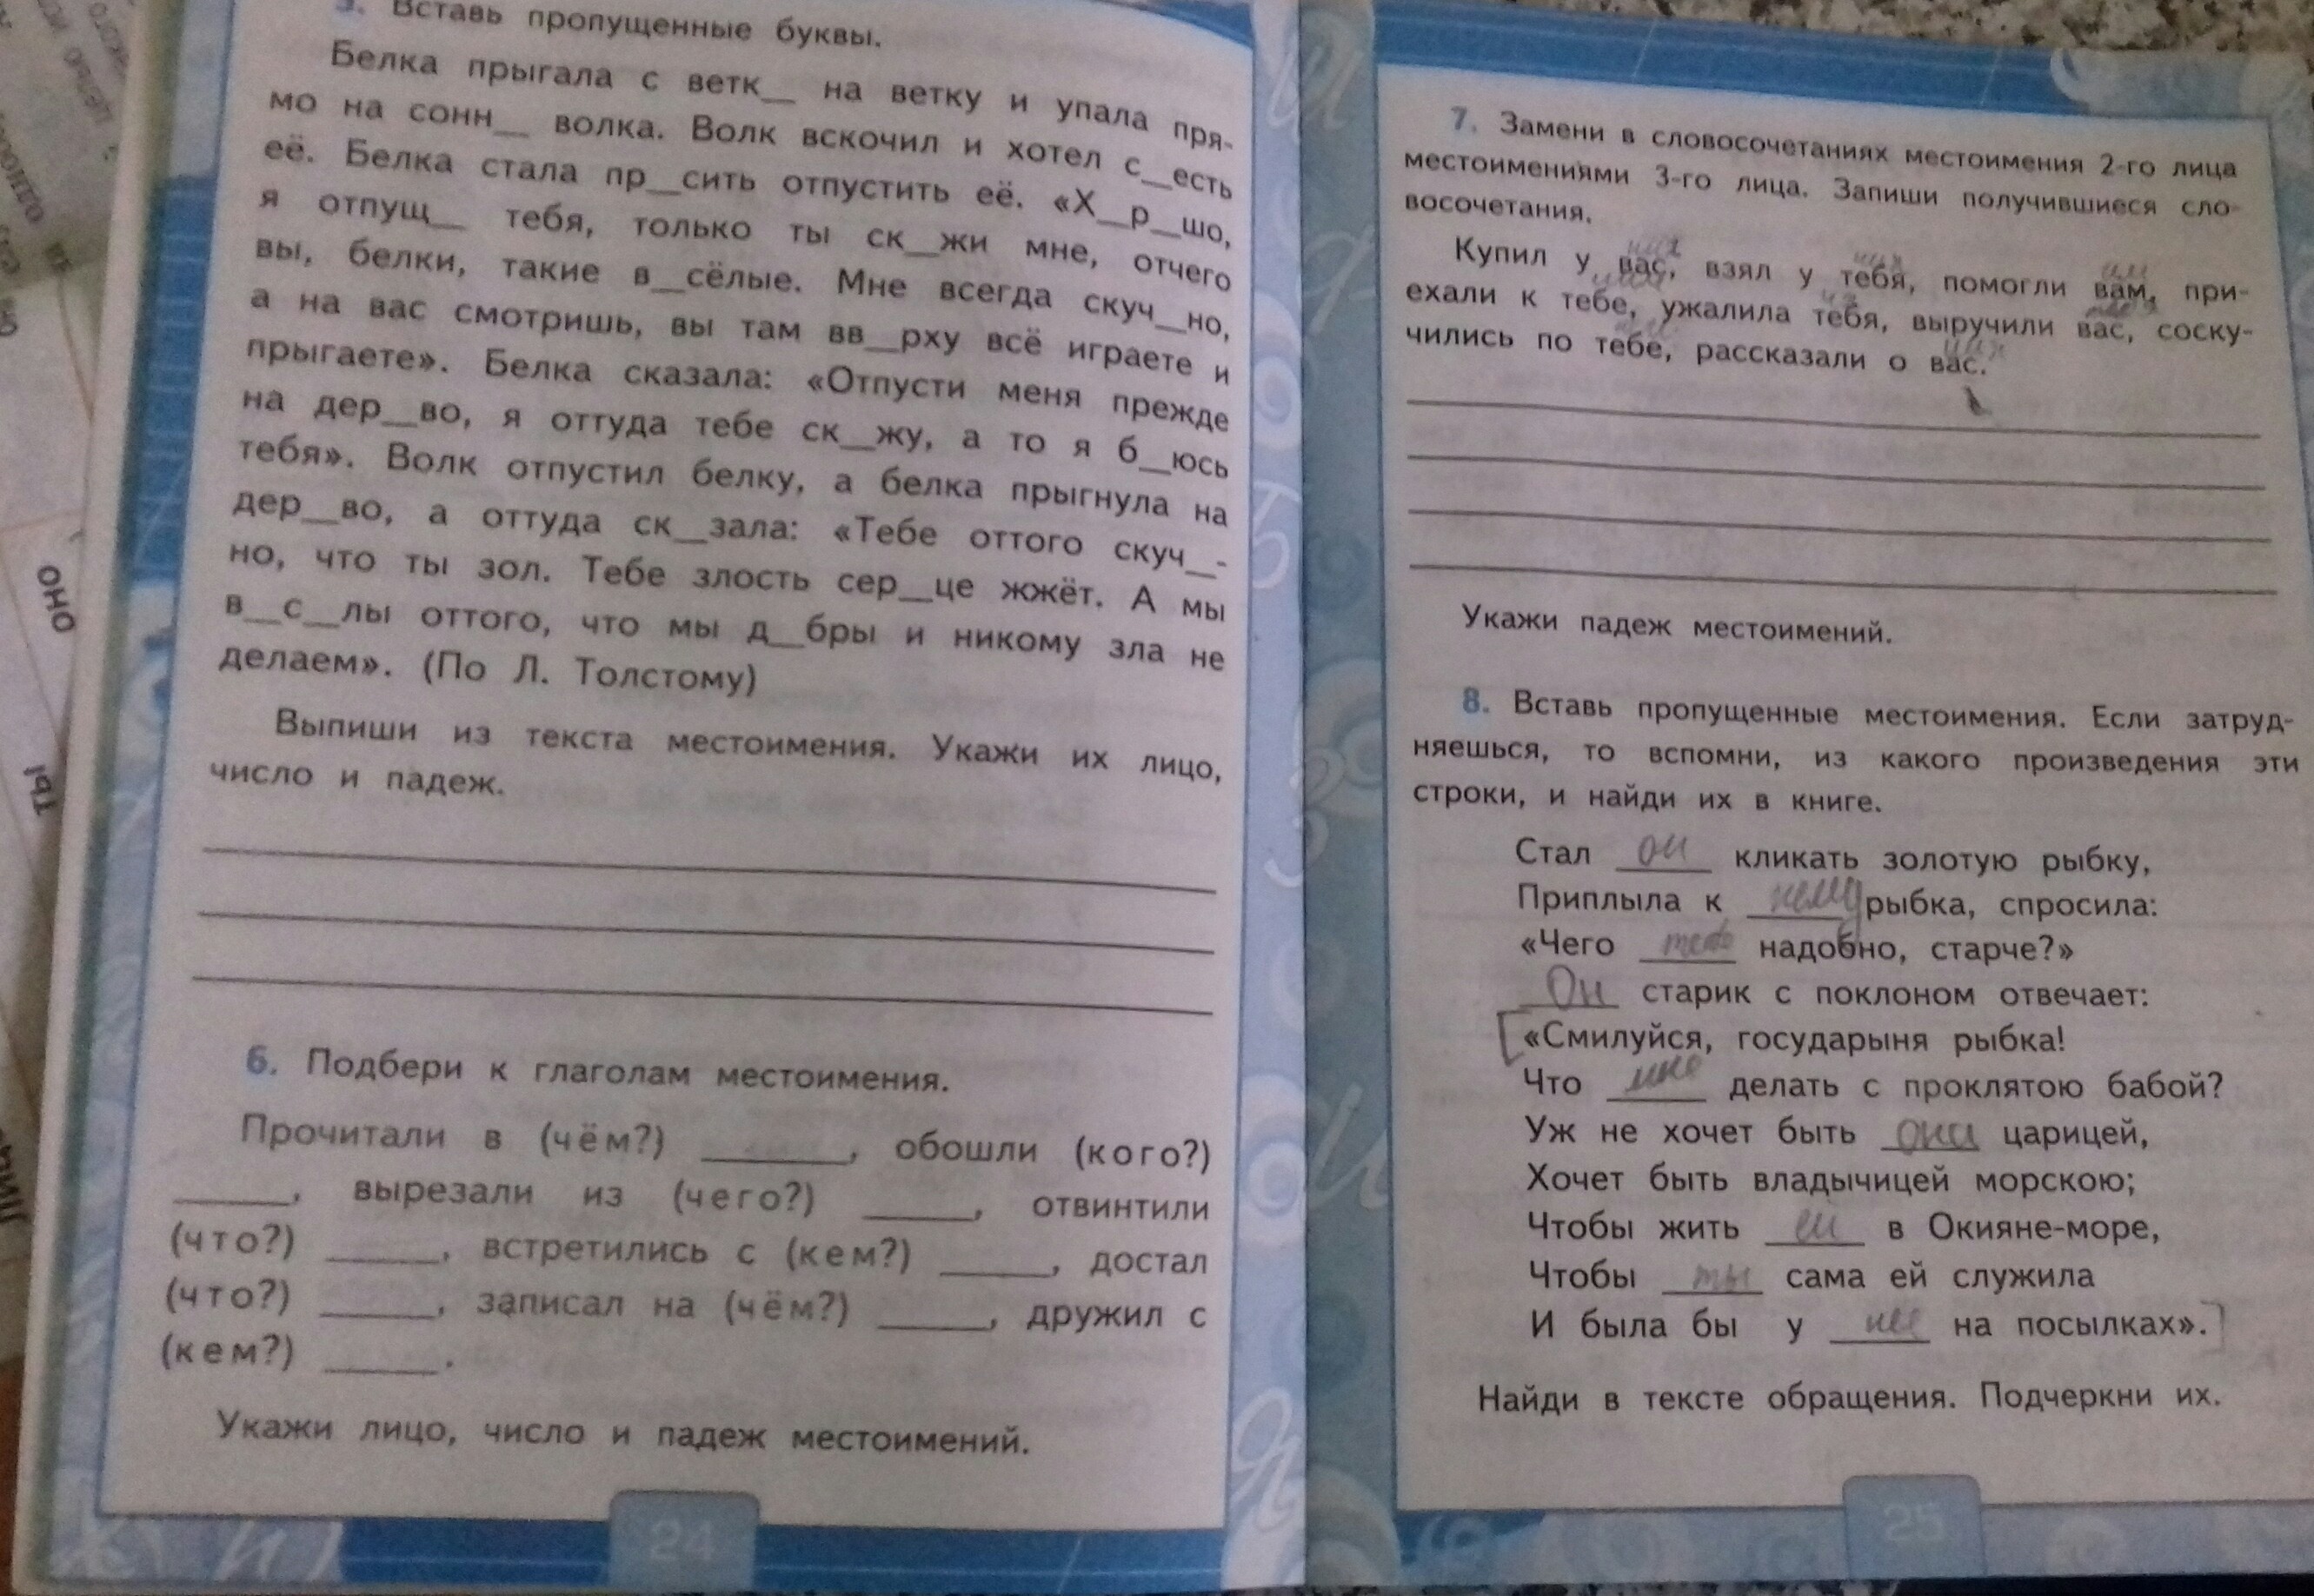 оно
ты
5. Вставь пропущенные буквы.
Белка прыгала с ветк__ на ветку и упала пря-
мо на сонн__ волка. Волк вскочил и хотел с__есть
её. Белка стала пр__сить отпустить её. «Х__р__шо,
я отпущ__ тебя, только ты ск__жи мне, отчего
вы, белки, такие в__сёлые. Мне всегда скуч__но,
а на вас смотришь, вы там вв__рху всё играете и
прыгаете». Белка сказала: «Отпусти меня прежде
на дер__во, я оттуда тебе ск__жу, а то я б__юсь
тебя». Волк отпустил белку, а белка прыгнула на
дер__во, а оттуда ск__зала: «Тебе оттого скуч__-
но, что ты зол. Тебе злость сер__це жжёт. А мы
в__с__лы оттого, что мы д__бры и никому зла не
делаем». (По Л. Толстому)
Выпиши из текста местоимения. Укажи их лицо,
число и падеж.
6. Подбери к глаголам местоимения.
Прочитали в (чём?) ______, обошли (кого?)
______, вырезали из (чего?) ______, отвинтили
(что?) ______, встретились с (кем?) ______, достал
(что?) ______, записал на (чём?) ______, дружил с
(кем?) ______.
Укажи лицо, число и падеж местоимений.
24
7. Замени в словосочетаниях местоимения 2-го лица
местоимениями 3-го лица. Запиши получившиеся сло-
восочетания.
них им
Купил у вас, взял у тебя, помогли вам, при-
ехали к тебе, ужалила тебя, выручили вас, соску-
чились по тебе, рассказали о вас.
Укажи падеж местоимений.
8. Вставь пропущенные местоимения. Если затруд-
няешься, то вспомни, из какого произведения эти
строки, и найди их в книге.
Стал он кликать золотую рыбку,
Приплыла к нему рыбка, спросила:
«Чего тебе надобно, старче?»
Он старик с поклоном отвечает:
«Смилуйся, государыня рыбка!
Что мне делать с проклятою бабой?
Уж не хочет быть она царицей,
Хочет быть владычицей морскою;
Чтобы жить ей в Окияне-море,
Чтобы ты сама ей служила
И была бы у нее на посылках».
Найди в тексте обращения. Подчеркни их.
25